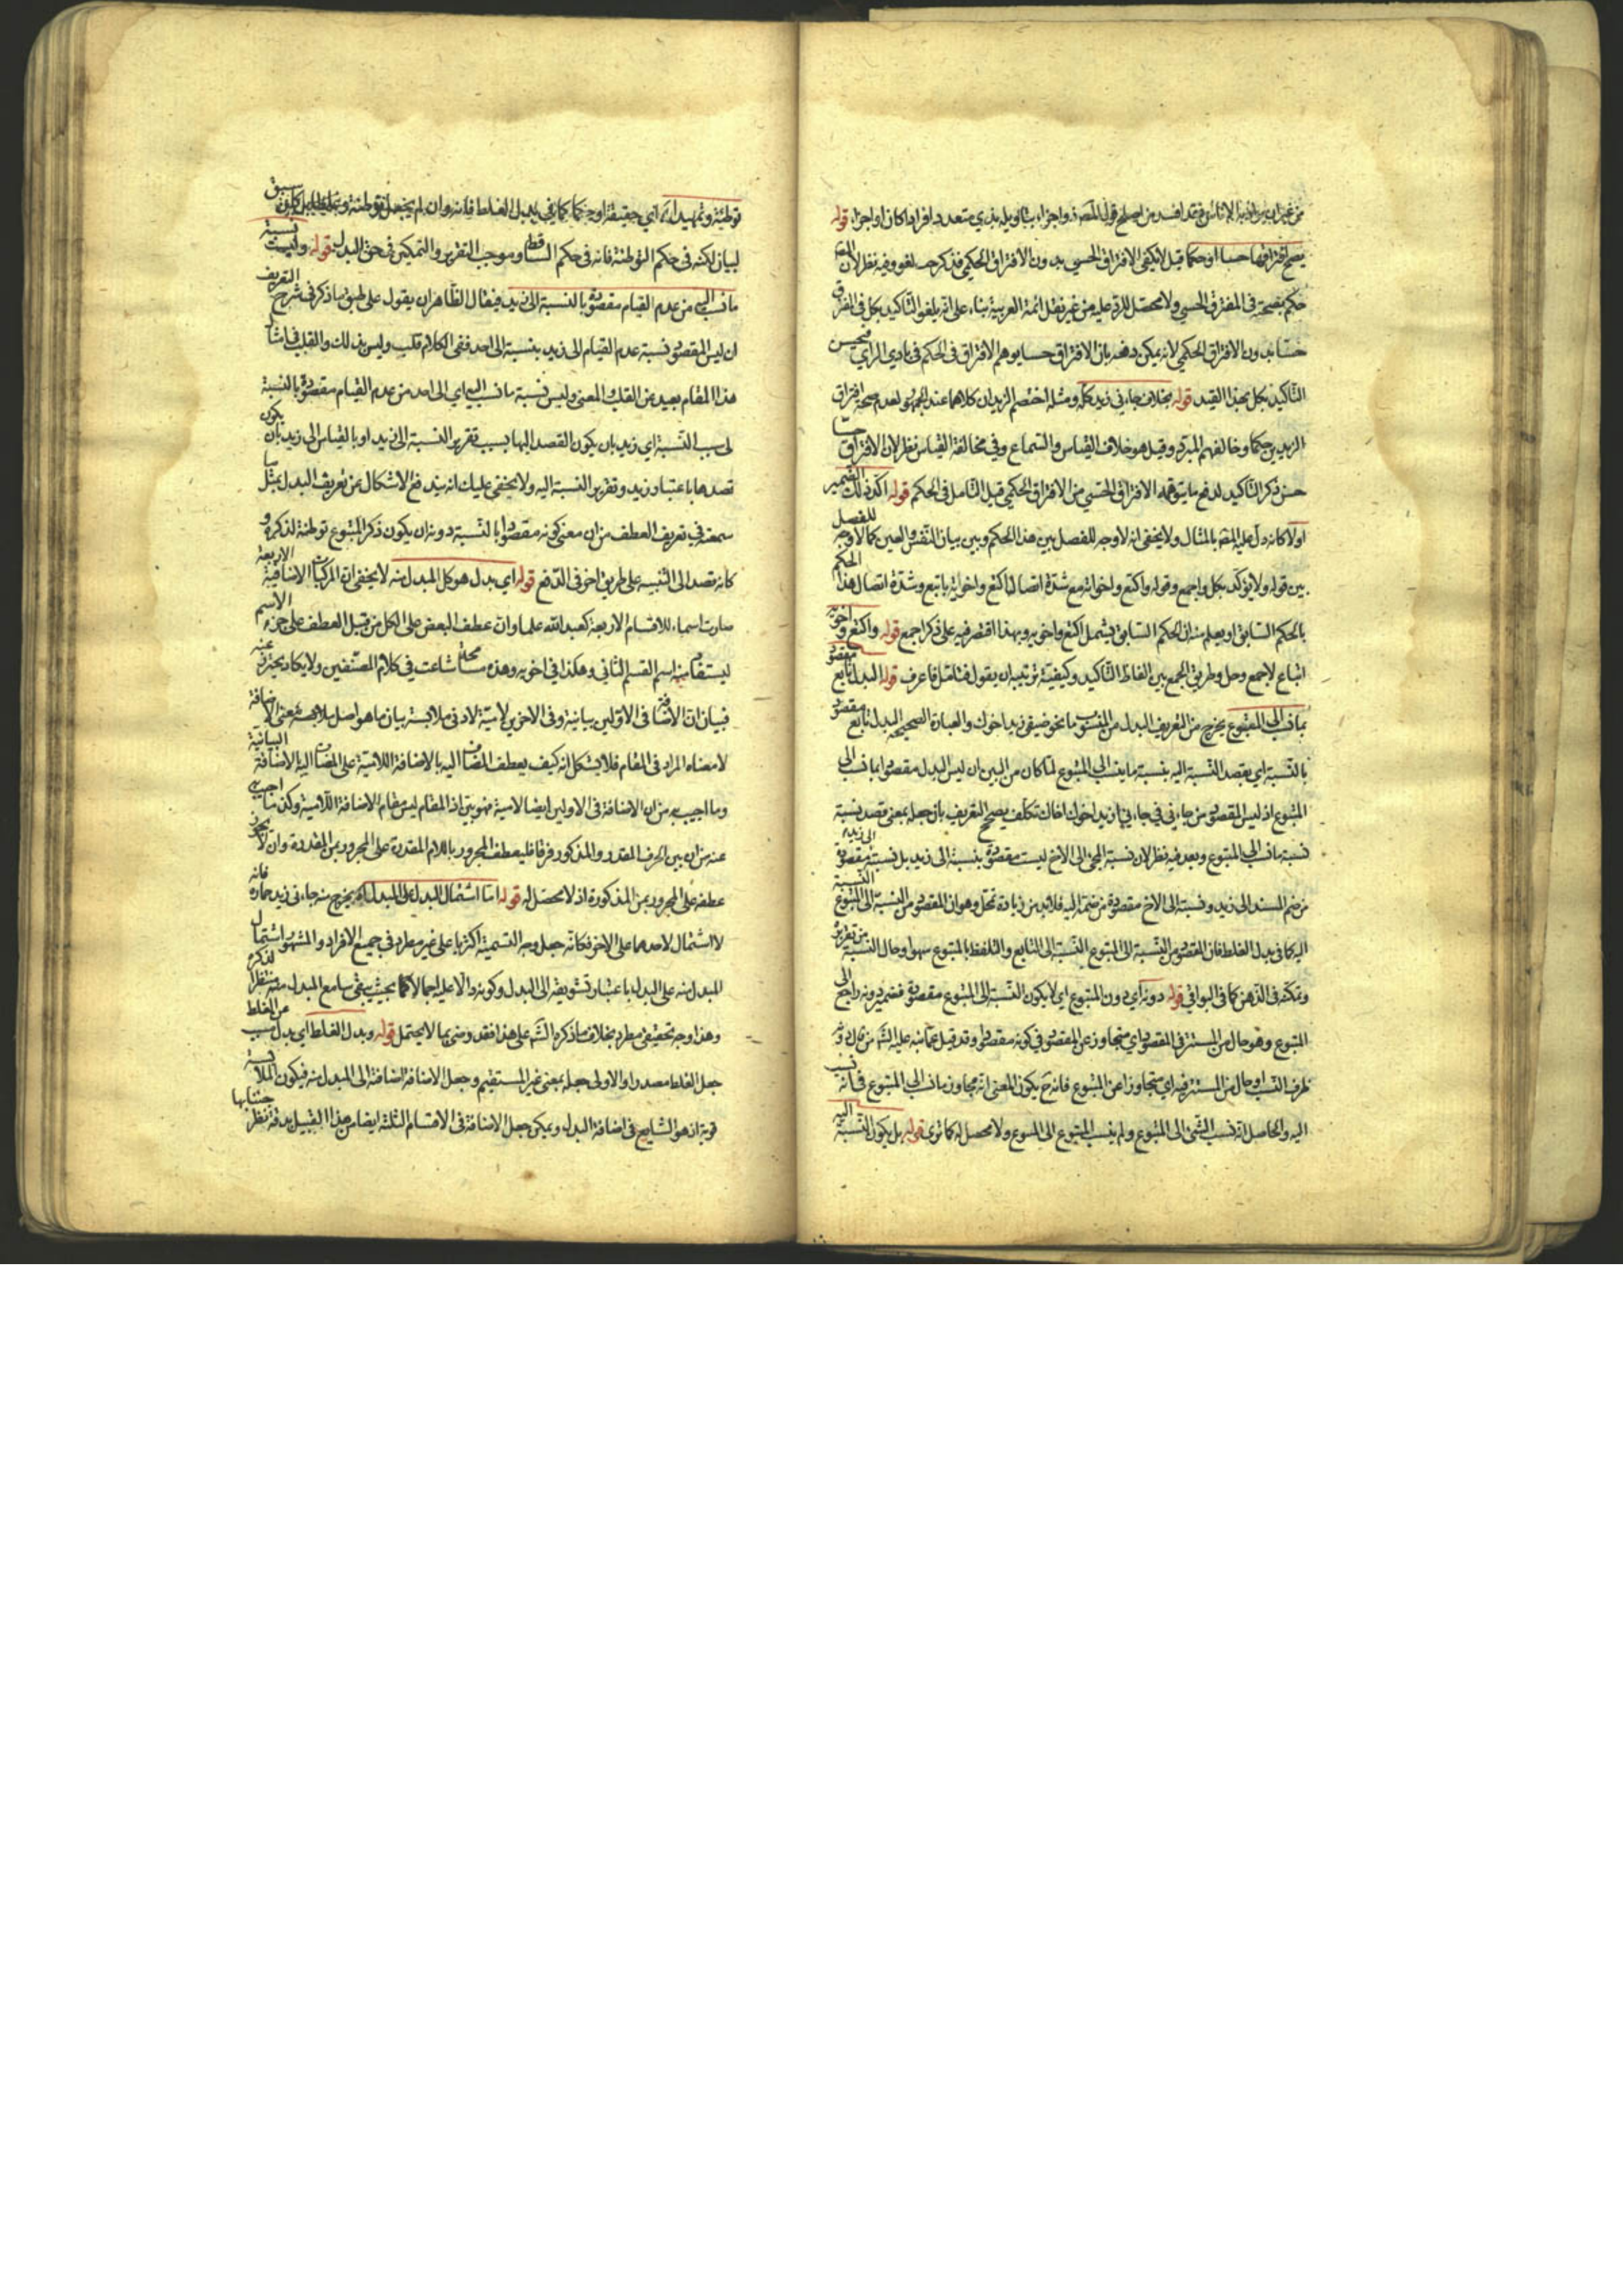 من غير ان يراد به الاناسي فقد افسد من اصلح قول المصنف واجزاء بتاويله بذي متعدد افرادا كان او اجزاء قوله
يصح افتراقها حسا او حكما قيل لا يكفي الافتراق الحسي بدون الافتراق الحكمي فذكر حسا لغو وفيه نظر لان المصـ
حكم بصحته في المفترق الحسي ولا محصل للرد عليه من غير نقل ائمة العربية بناء على انه يلغو التاكيد بكل في المفترق
حسا بدون الافتراق الحكمي لانه يمكن دفعه بان الافتراق حسا يوهم الافتراق في الحكم في بادي الراي فيحسن
التاكيد بكل بهذا القيد قوله بخلاف جاءني زيد كله ومثله اختصم الزيدان كلاهما عند الجمهور لعدم صحة افتراق
الزيدين حكما وخالفهم المبرد وقيل هو خلاف القياس والسماع وفي مخالفة القياس نظر لان الافتراق حسا
حسن ذكر التاكيد لدفع ما يتوهمه الافتراق الحسي من الافتراق الحكمي قبل التامل في الحكم قوله اكد ذلك الضمير
اولا كانه دل عليه المصـ بالمثال ولا يخفى انه لا وجه للفصل بين هذا الحكم وبين بيان النفس والعين كما لا وجه للفصل
بين قوله ولا يؤكد بكل واجمع وقوله واكتع واخواته مع شدة اتصال اكتع واخواته باتبع وشدة اتصال هذا الحكم
بالحكم السابق او يعلم منه ان الحكم السابق يشمل اكتع واخويه وبهذا اقتصر فيه على ذكر اجمع قوله واكتع واخويه
اتباع لاجمع وحل وطريق الجمع بين الفاظ التاكيد وكيفية ترتيبه ان يقول فتامل فاعرف قوله البدل تابع مقصود
بما نسب الى المتبوع يخرج من التعريف البدل من المنسوب ما نحو ضيفي زيد اخوك والعبارة الصحيحة البدل تابع مقصود
بالنسبة اي بقصد النسبة اليه بنسبة ما ينسب الى المتبوع لما كان من البين ان ليس البدل مقصودا بما نسب الى
المتبوع اذ ليس المقصود من جاءني في جاءني زيد اخوك اخاك تكلف يصحح التعريف بان جعله بمعنى قصد نسبة
نسبة ما نسب الى المتبوع وبعد فيه نظر لان نسبة المجئ الى الاخ ليست مقصودة بنسبة الى زيد بل نسبته الى زيد مقصودة
من ضم المسند الى زيد ونسبة الى الاخ مقصودة من ضمه اليه فلا بد من زيادة تمحل وهو ان المقصود من النسبة الى المتبوع النسبة
اليه كما في بدل الغلط فان المقصود من النسبة الى المتبوع النسبة الى التابع والتلفظ بالمتبوع سهوا وحال النسبة من تقريره
وتمكنه في الذهن كما في البواقي قوله دونه اي دون المتبوع اي لا يكون النسبة الى المتبوع مقصودة فضمير دونه راجع الى
المتبوع وهو حال من المستتر في المقصود اي متجاوزا عن المقصود في كونه مقصودا وقد قيل عما نبه عليه الشـ من ان دونه
ظرف النسب او حال من المستتر فيه اي متجاوزا عن المتبوع فانه ح يكون المعنى انه متجاوز ما نسب الى المتبوع في انه نسب
اليه والحاصل انه نسب الشئ الى المتبوع ولم ينسب المتبوع الى المتبوع ولا محصل له كما ترى قوله بل يكون النسبة اليه
توطئة وتمهيدا له اي حقيقة او حكما كما في بدل الغلط فانه وان لم يجعل توطئة وتمهيدا بل كان سبق
لبيان لكنه في حكم التوطئة فانه في حكم الساقط وموجب التقرير والتمكين في حق البدل قوله وليست نسبة
ما نسب اليه من عدم القيام مقصودة بالنسبة الى زيد فيقال الظاهر ان يقول على طبق ما ذكر في شرح التعريف
ان ليس المقصود نسبة عدم القيام الى زيد بنسبة الى احد ففي الكلام قلب وليس بذلك والقلب في امثال
هذا المقام بعيد عن القلب المعنى وليس نسبة ما نسب اليه اي الى احد من عدم القيام مقصودة بالنسبة
لسبب النسبة اي زيد بان يكون القصد اليها بسبب تقرير النسبة الى زيد او بالقياس الى زيد بان يكون
قصدها باعتبار زيد وتقرير النسبة اليه ولا يخفى عليك انه يندفع الاشكال عن تعريف البدل بمثل ما
سمعته في تعريف العطف من ان معنى كونه مقصودا بالنسبة دونه ان يكون ذكر المتبوع توطئة لذكره و
كانه قصد الى التنبيه على طريق اخر في الدفع قوله اي بدل هو كل المبدل منه لا يخفى ان المركبات الاضافية الاربعة
صارت اسماء للاقسام الاربعة كعبد الله علما وان عطف البعض على الكل من قبيل العطف على جزء الاسم
ليستفاد منه اسم القسم الثاني وهكذا في اخويه وهذه مسامحة شاعت في كلام المصنفين ولا يكاد يحترز عنه
فبيان ان الاضافة في الاولين بيانية وفي الاخرين لامية لادنى ملابسة بيان ما هو اصل ملابسة معنى الاضافة
لا معناه المراد في المقام فلا يشكل انه كيف يعطف المضاف اليه بالاضافة اللامية على المضاف اليه بالاضافة البيانية
وما اجيب به من ان الاضافة في الاولين ايضا لامية مهو بين اذ المقام ليس مقام الاضافة اللامية وكذا ما اجيب
عنه من ان بين الحرف المقدر والمذكور فرقا فليعطف المجرور باللام المقدرة على المجرور بمن المقدرة وان لم يجز
عطفه على المجرور بمن المذكورة اذ لا محصل له قوله اما اشتمال البدل على المبدل منه يخرج منه جاءني زيد حماره فانه
لا اشتمال لاحدهما على الاخر فكانه جعل وجه التسمية اكثريا على غير مطرد في جميع الافراد والمشهور اشتمال
المبدل منه على البدل باعتبار تشويقه الى البدل وكونه دالا عليه اجمالا كما بحيث يبقى سامع المبدل منه منتظرا لذكره
وهذا وجه تحقيقي مطرد بخلاف ما ذكره الشـ على هذا فقد ومنى بما لا يحتمل قوله وبدل الغلط اي بدل سبب عن الغلط
جعل الغلط مصدرا والاولى جعله بمعنى غير المستقيم وجعل الاضافة اضافة الى المبدل منه فيكون الملابسة
قوية اذ هو الشايع في اضافة البدل ويمكن جعل الاضافة في الاقسام الثلثة ايضا من هذا القبيل بدقة نظر